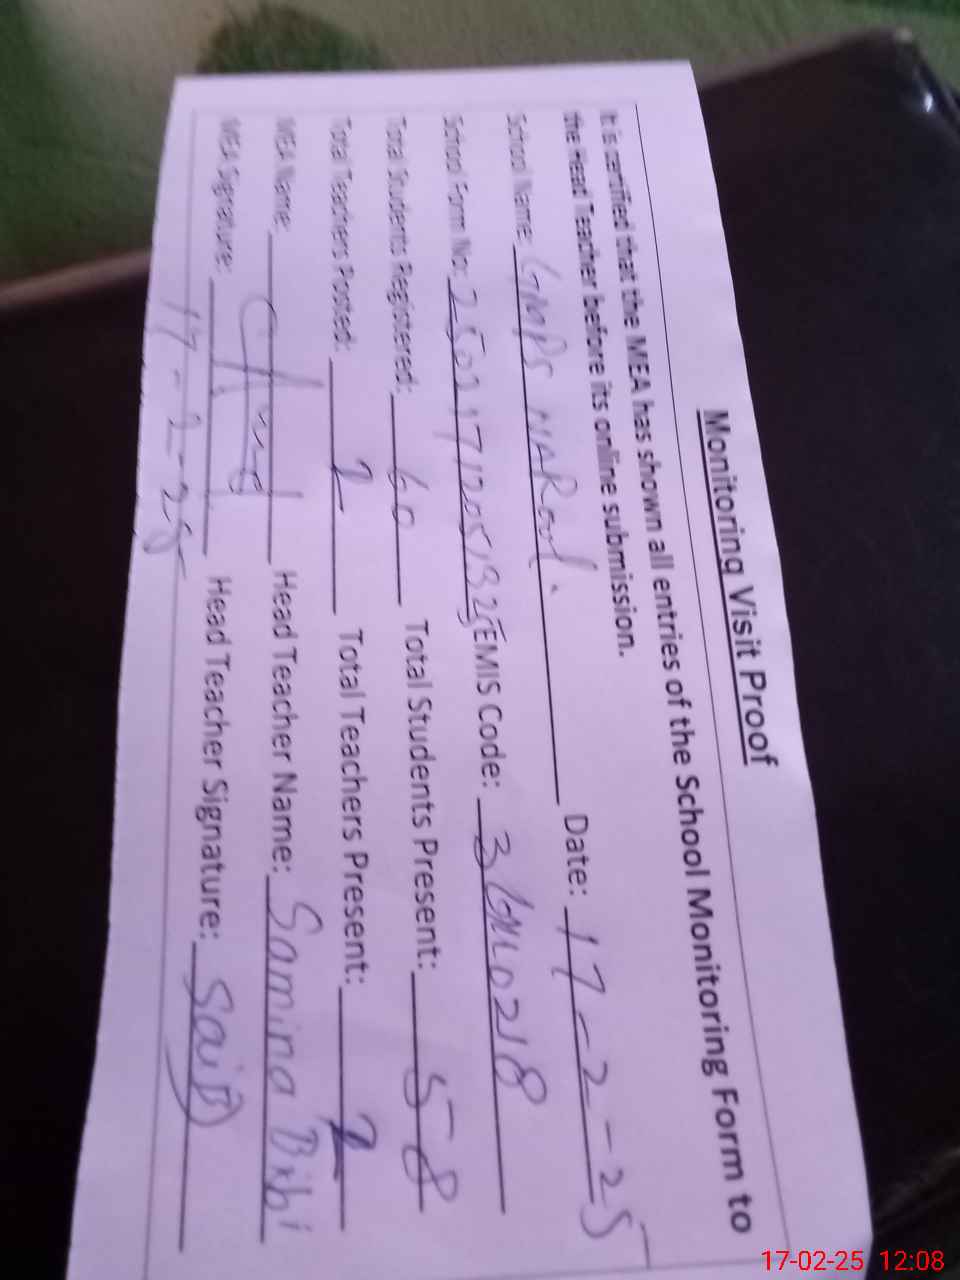 Monitoring Visit Proof
It is certified that the MEA has shown all entries of the School Monitoring Form to
the Head Teacher before its online submission.
School Name: GMPS Date: 17-2-25
School Form No: EMIS Code:
Total Students Registered: 60 Total Students Present: 58
Total Teachers Posted: 2 Total Teachers Present: 2
MEA Name: Head Teacher Name: Samina Bibi
MEA Signature: Head Teacher Signature:
17-2-25
17-02-25 12:08